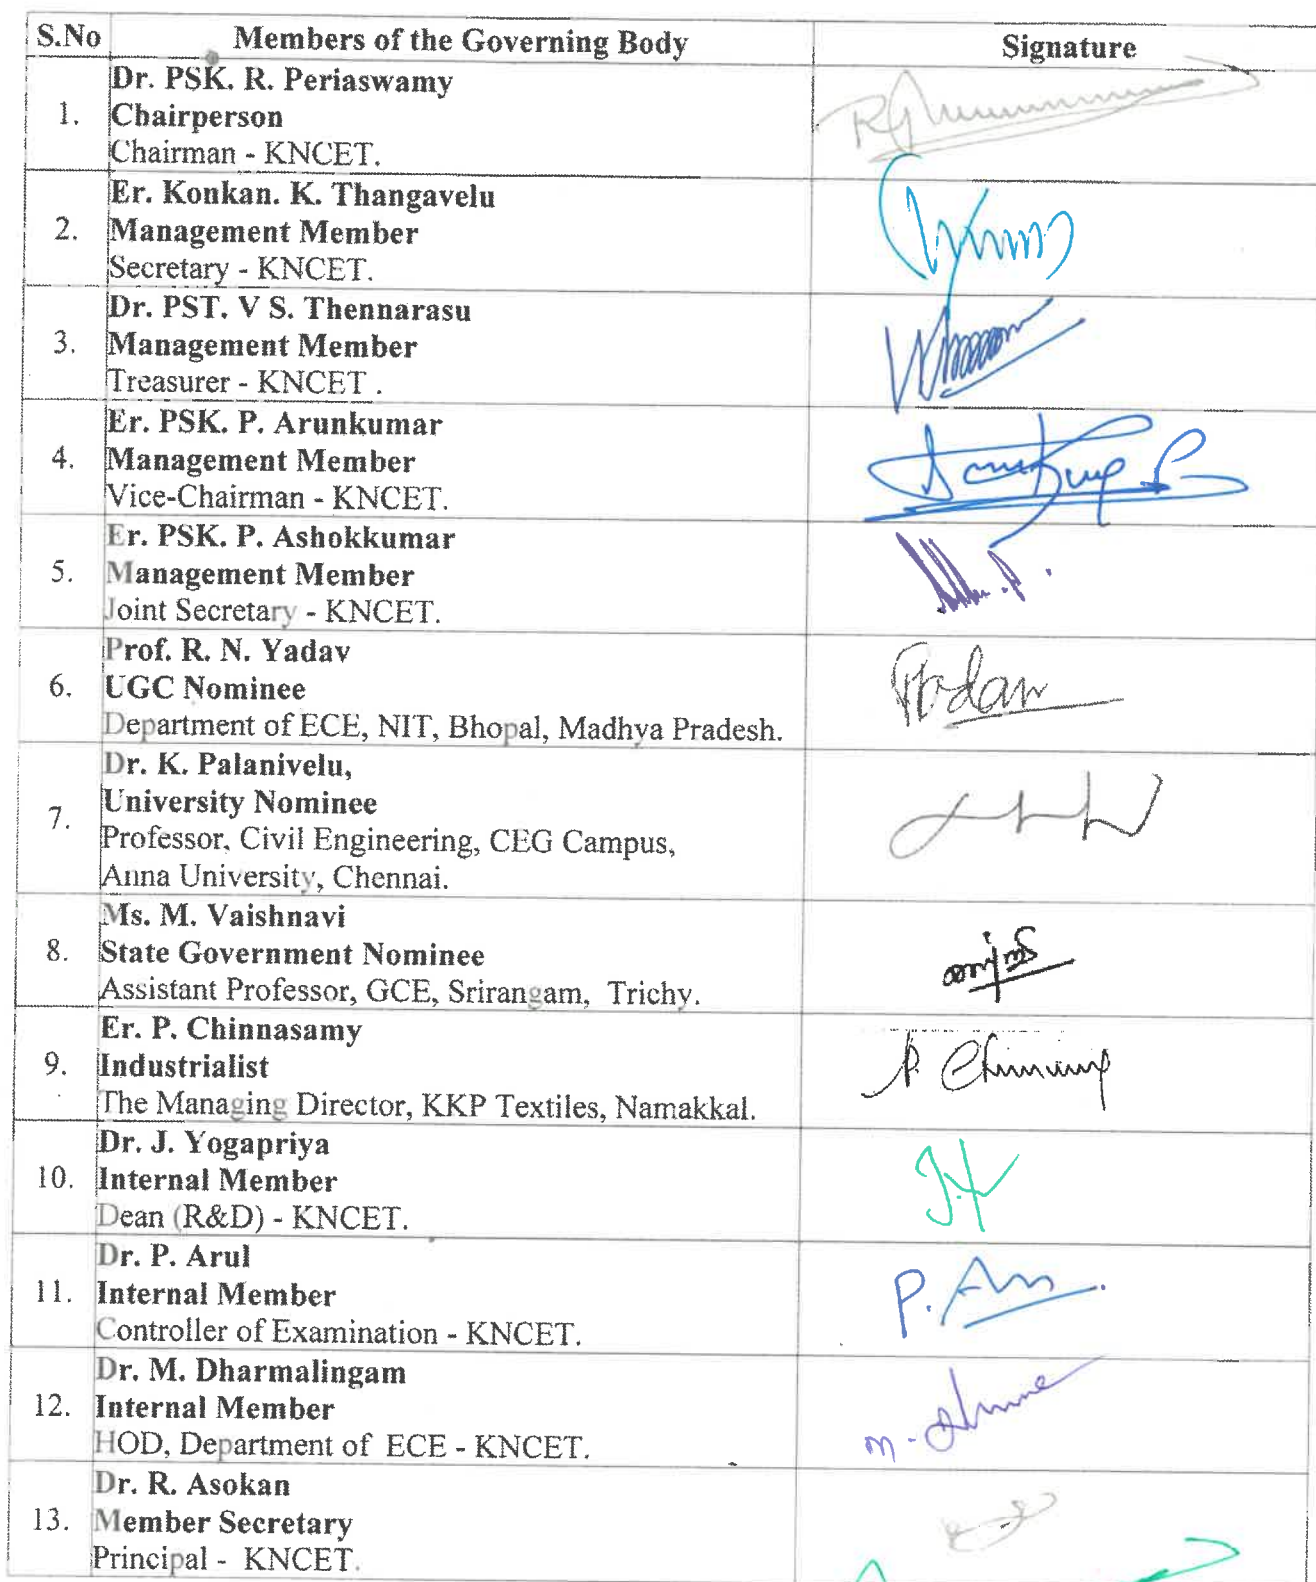 S.No Members of the Governing Body Signature
Dr. PSK. R. Periaswamy
1. Chairperson
Chairman - KNCET.
Er. Konkan. K. Thangavelu
2. Management Member
Secretary - KNCET.
Dr. PST. V S. Thennarasu
3. Management Member
Treasurer - KNCET .
Er. PSK. P. Arunkumar
4. Management Member
Vice-Chairman - KNCET.
Er. PSK. P. Ashokkumar
5. Management Member
Joint Secretary - KNCET.
Prof. R. N. Yadav
6. UGC Nominee
Department of ECE, NIT, Bhopal, Madhya Pradesh.
Dr. K. Palanivelu,
University Nominee
7.
Professor, Civil Engineering, CEG Campus,
Anna University, Chennai.
Ms. M. Vaishnavi
8. State Government Nominee
Assistant Professor, GCE, Srirangam, Trichy.
Er. P. Chinnasamy
9. Industrialist
The Managing Director, KKP Textiles, Namakkal.
Dr. J. Yogapriya
10. Internal Member
Dean (R&D) - KNCET.
Dr. P. Arul
11. Internal Member
Controller of Examination - KNCET.
Dr. M. Dharmalingam
12. Internal Member
HOD, Department of ECE - KNCET.
Dr. R. Asokan
13. Member Secretary
Principal - KNCET.